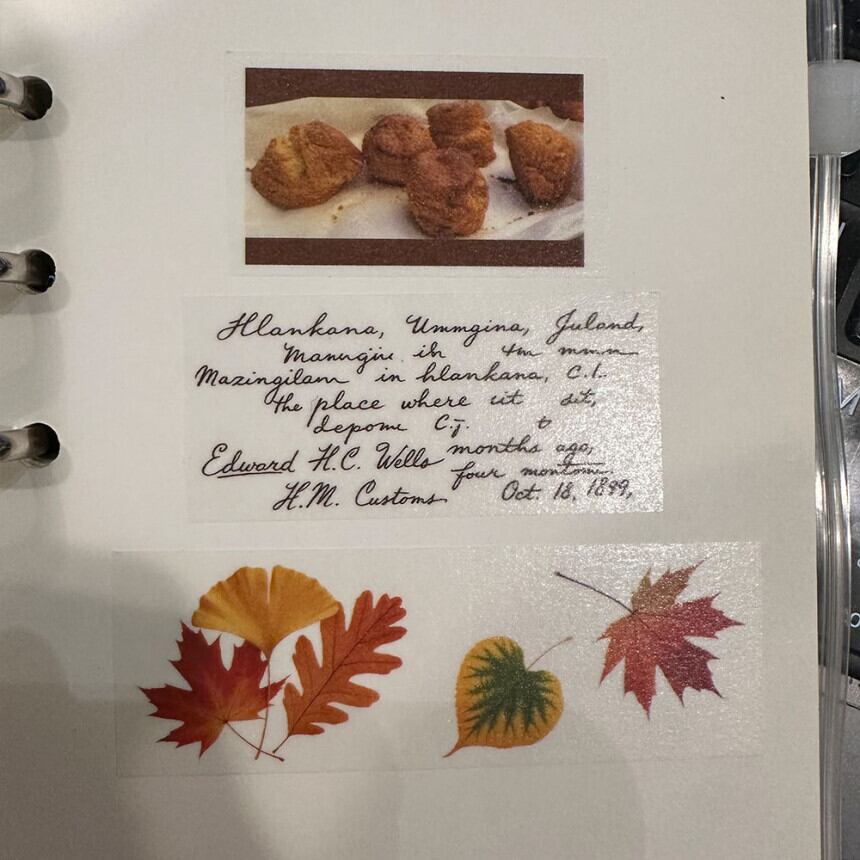 Hlankana, Ummgina, Juland,
Manugin ih
Mazingilam in hlankana, C.L.
the place where it sit,
depome C.J. to
Edward H.C. Wells months ago,
H.M. Customs four
Oct. 18, 1899,